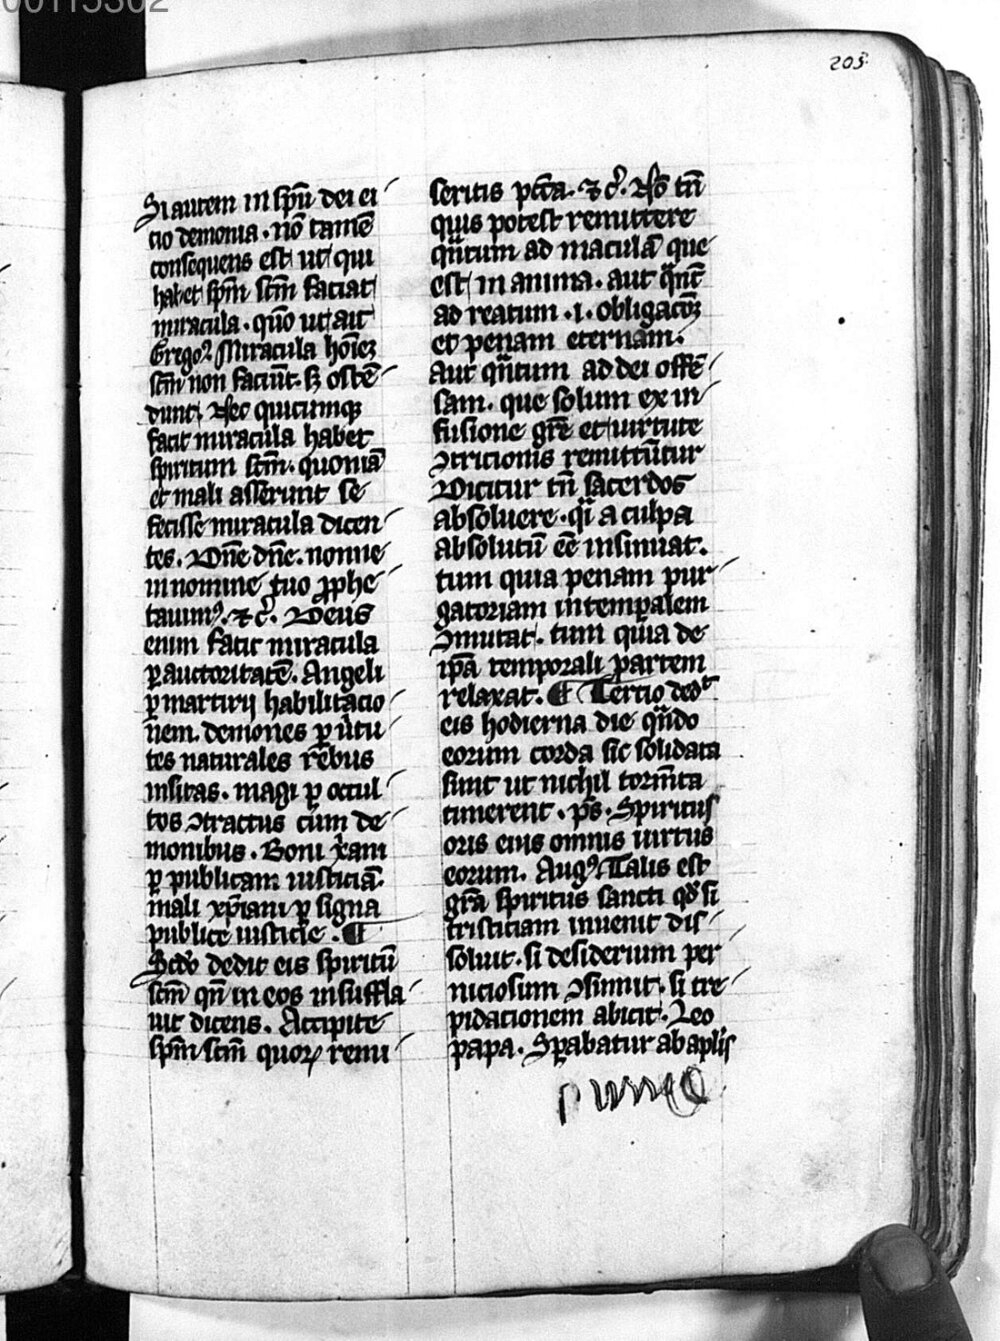 00115302
205
Si autem in spū dei ei
cio demonia. nō tamē
consequens est ut qui
habet spm̄ scm̄ faciat
miracula. quō ut ait
Gregoꝰ Miracula hoīeʒ
scm̄ non faciūt. sʒ ostē
dunt. Nec quicumqʒ
facit miracula habet
spiritum scm̄. quoniā
et mali asserunt se
fecisse miracula dicen
tes. Dn̄e dn̄e. nonne
in nomine tuo ꝓphe
tauimꝰ. ⁊ c̄. Deus
enim facit miracula
ꝑ auctoritatē. Angeli
ꝑ martirij habilitacio
nem. demones ꝑ v̄tu
tes naturales rebus
insitas. magi ꝑ occul
tos ꝯtractus cum de
monibus. Boni xani
ꝑ publicam iusticiā.
mali xp̄iani ꝑ signa
publice iusticie. ¶
Scdo dedit eis spiritū
scm̄ qn̄ in eos insuffla
uit dicens. Accipite
spm̄ scm̄ quoꝝ remi
seritis pctā. ⁊ c̄. Nō tn̄
quis potest remittere
qn̄tum ad maculā que
est in anima. aut qn̄t
ad reatum .i. obligacōʒ
et penam eternam.
Aut qn̄tum ad dei offē
sam. que solum ex in
fusione gr̄e et uirtute
ꝯtricionis remittūtur
Dicitur tn̄ sacerdos
absoluere. qi a culpa
absolutū eē insinuat.
tum quia penam pur
gatoriam in tempalem
ꝯmutat. tum quia de
ipā temporali partem
relaxat. ¶ Tertio dedit
eis hodierna die qn̄do
eorum corda sic solidata
sunt ut nichil torm̄ta
timerent. ps. Spiritus
oris eius omnis uirtus
eorum. Augꝰ Talis est
gr̄a spiritus sancti qd si
tristiciam inuenit dis
soluit. si desiderium per
niciosum ꝯsumit. si tre
pidacionem abicit. Leo
papa. Sꝑabatur ab aplis